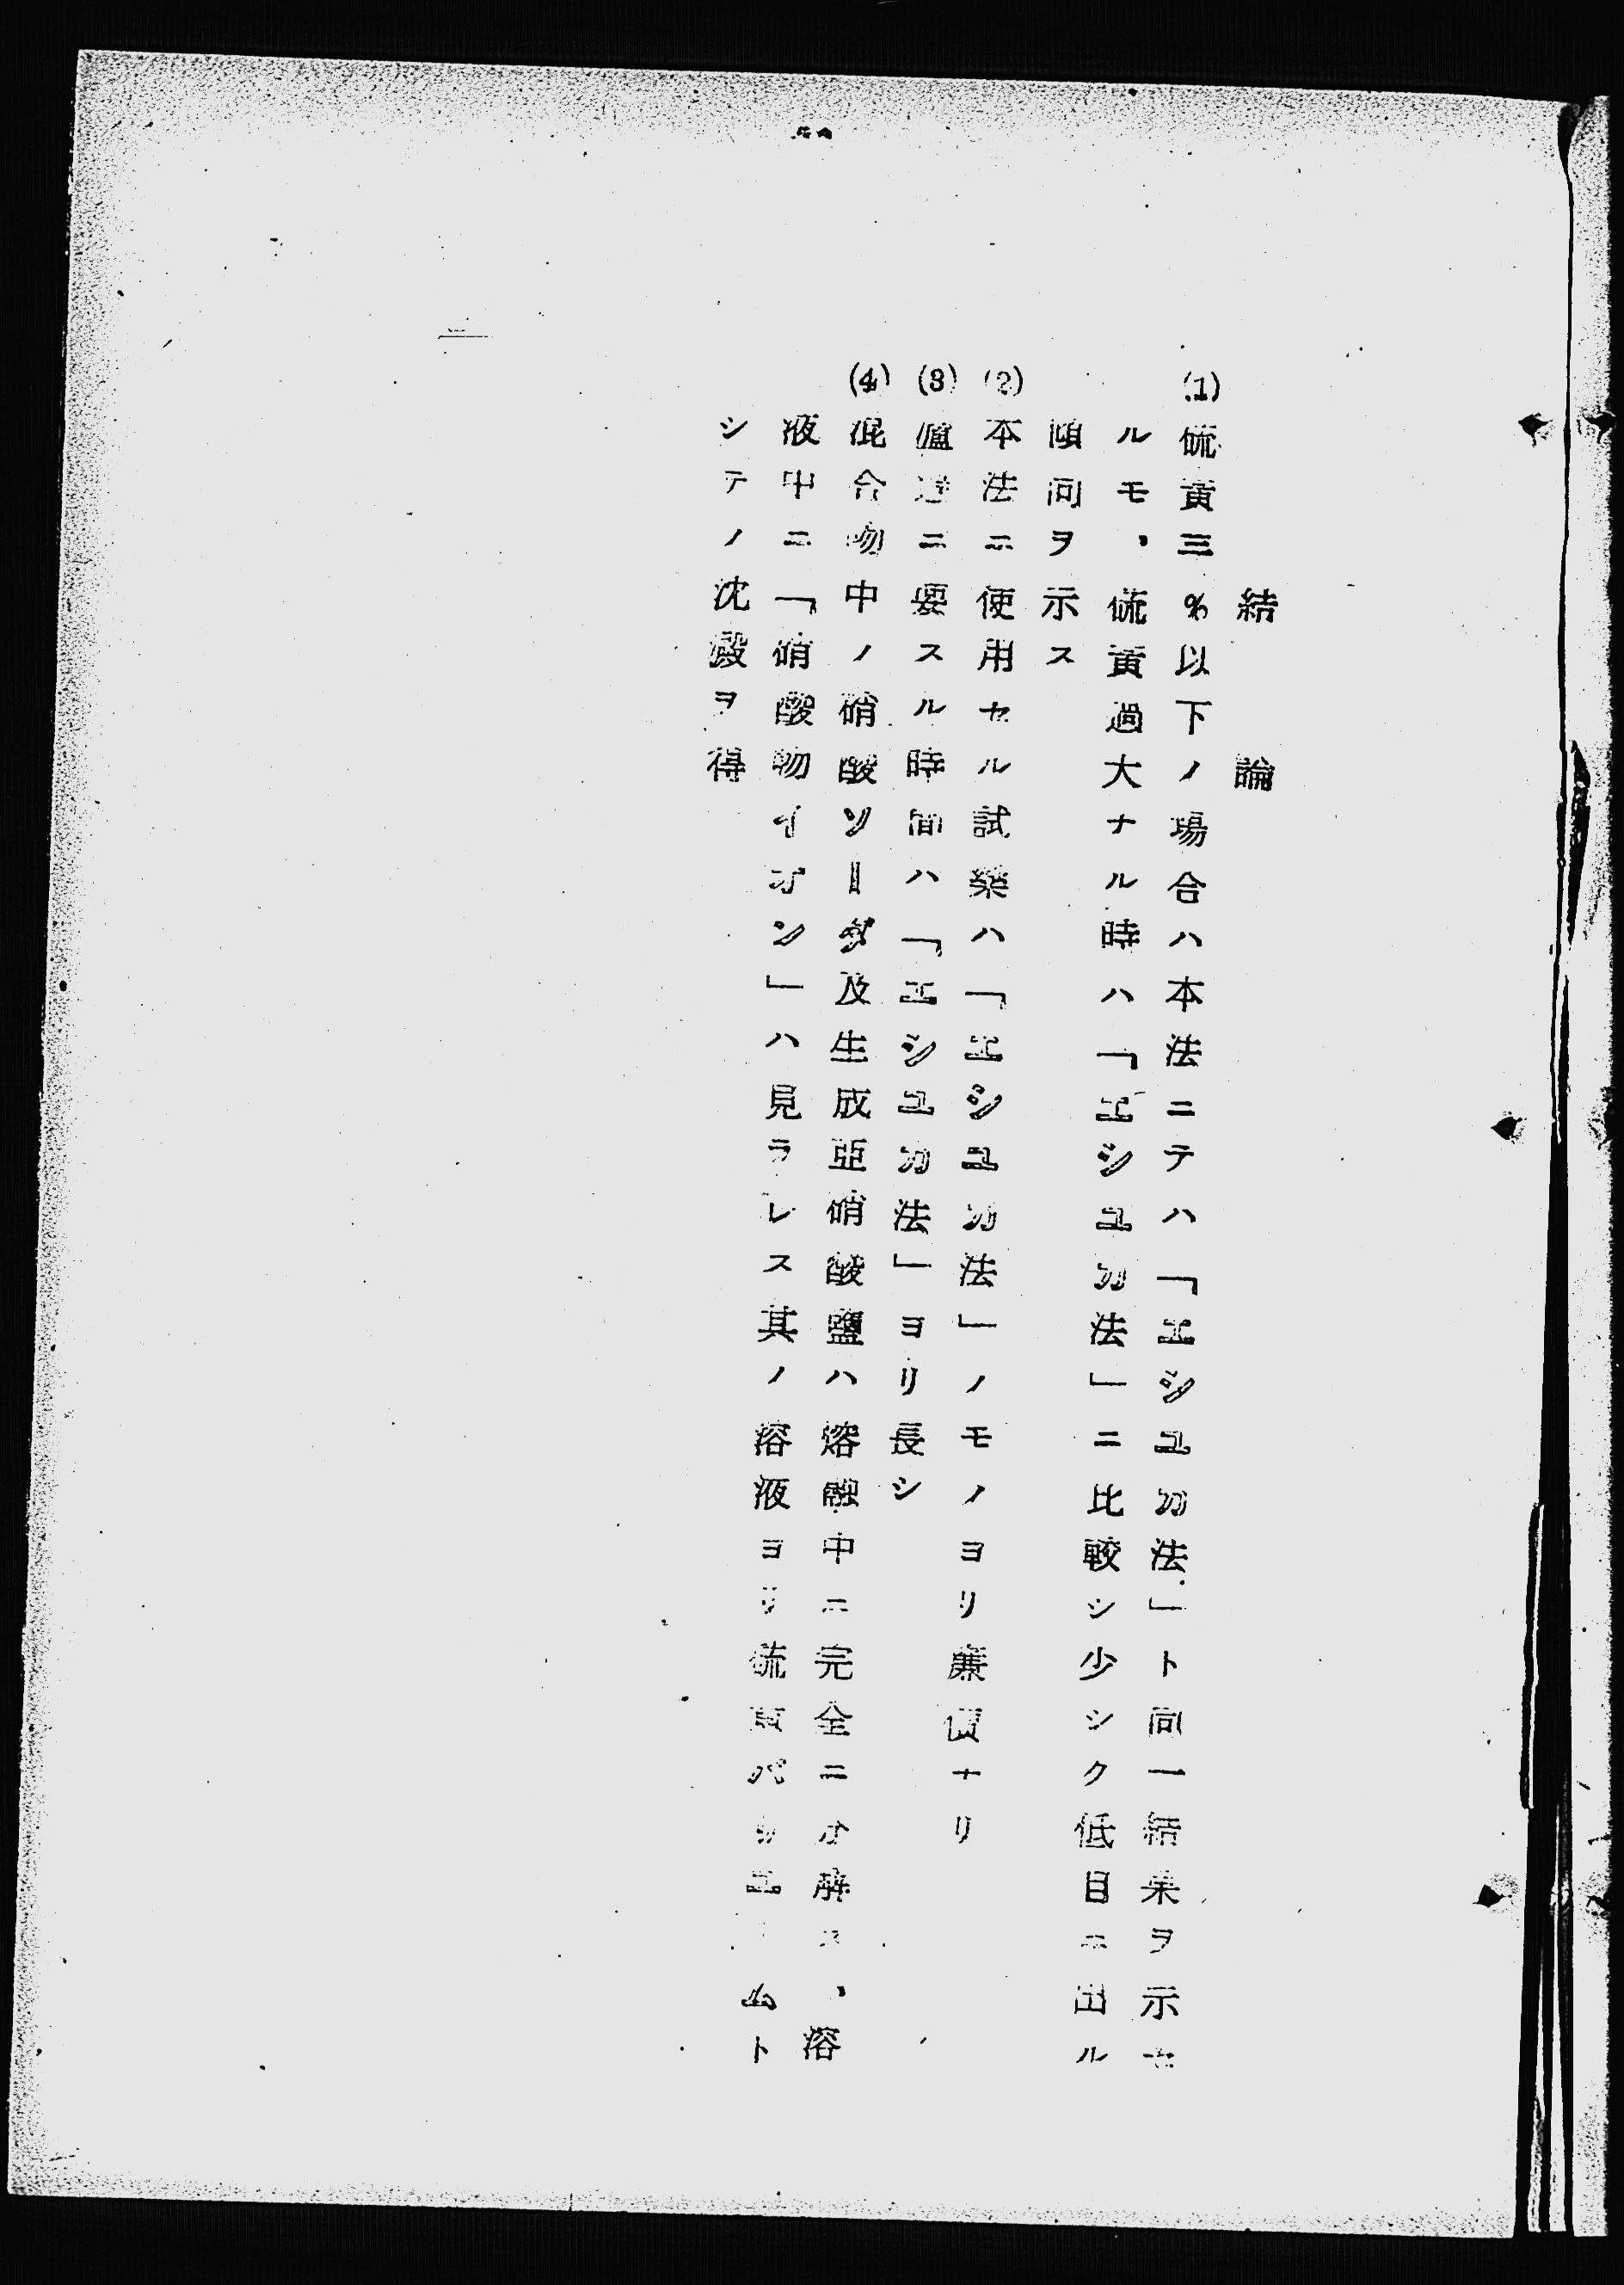 結論
(1) 硫黃三%以下ノ場合ハ本法ニテハ「エシユカ法」ト同一結果ヲ示セ
ルモ、硫黃過大ナル時ハ「エシユカ法」ニ比較シ少シク低目ニ出ル
傾向ヲ示ス
(2) 本法ニ使用セル試藥ハ「エシユカ法」ノモノヨリ廉價ナリ
(3) 爐過ニ要スル時間ハ「エシユカ法」ヨリ長シ
(4) 混合物中ノ硝酸ソーダ及生成亞硝酸鹽ハ熔融中ニ完全ニ分解ス、溶
液中ニ「硝酸物イオン」ハ見ラレス其ノ溶液ヨリ硫酸バリユームト
シテノ沈澱ヲ得